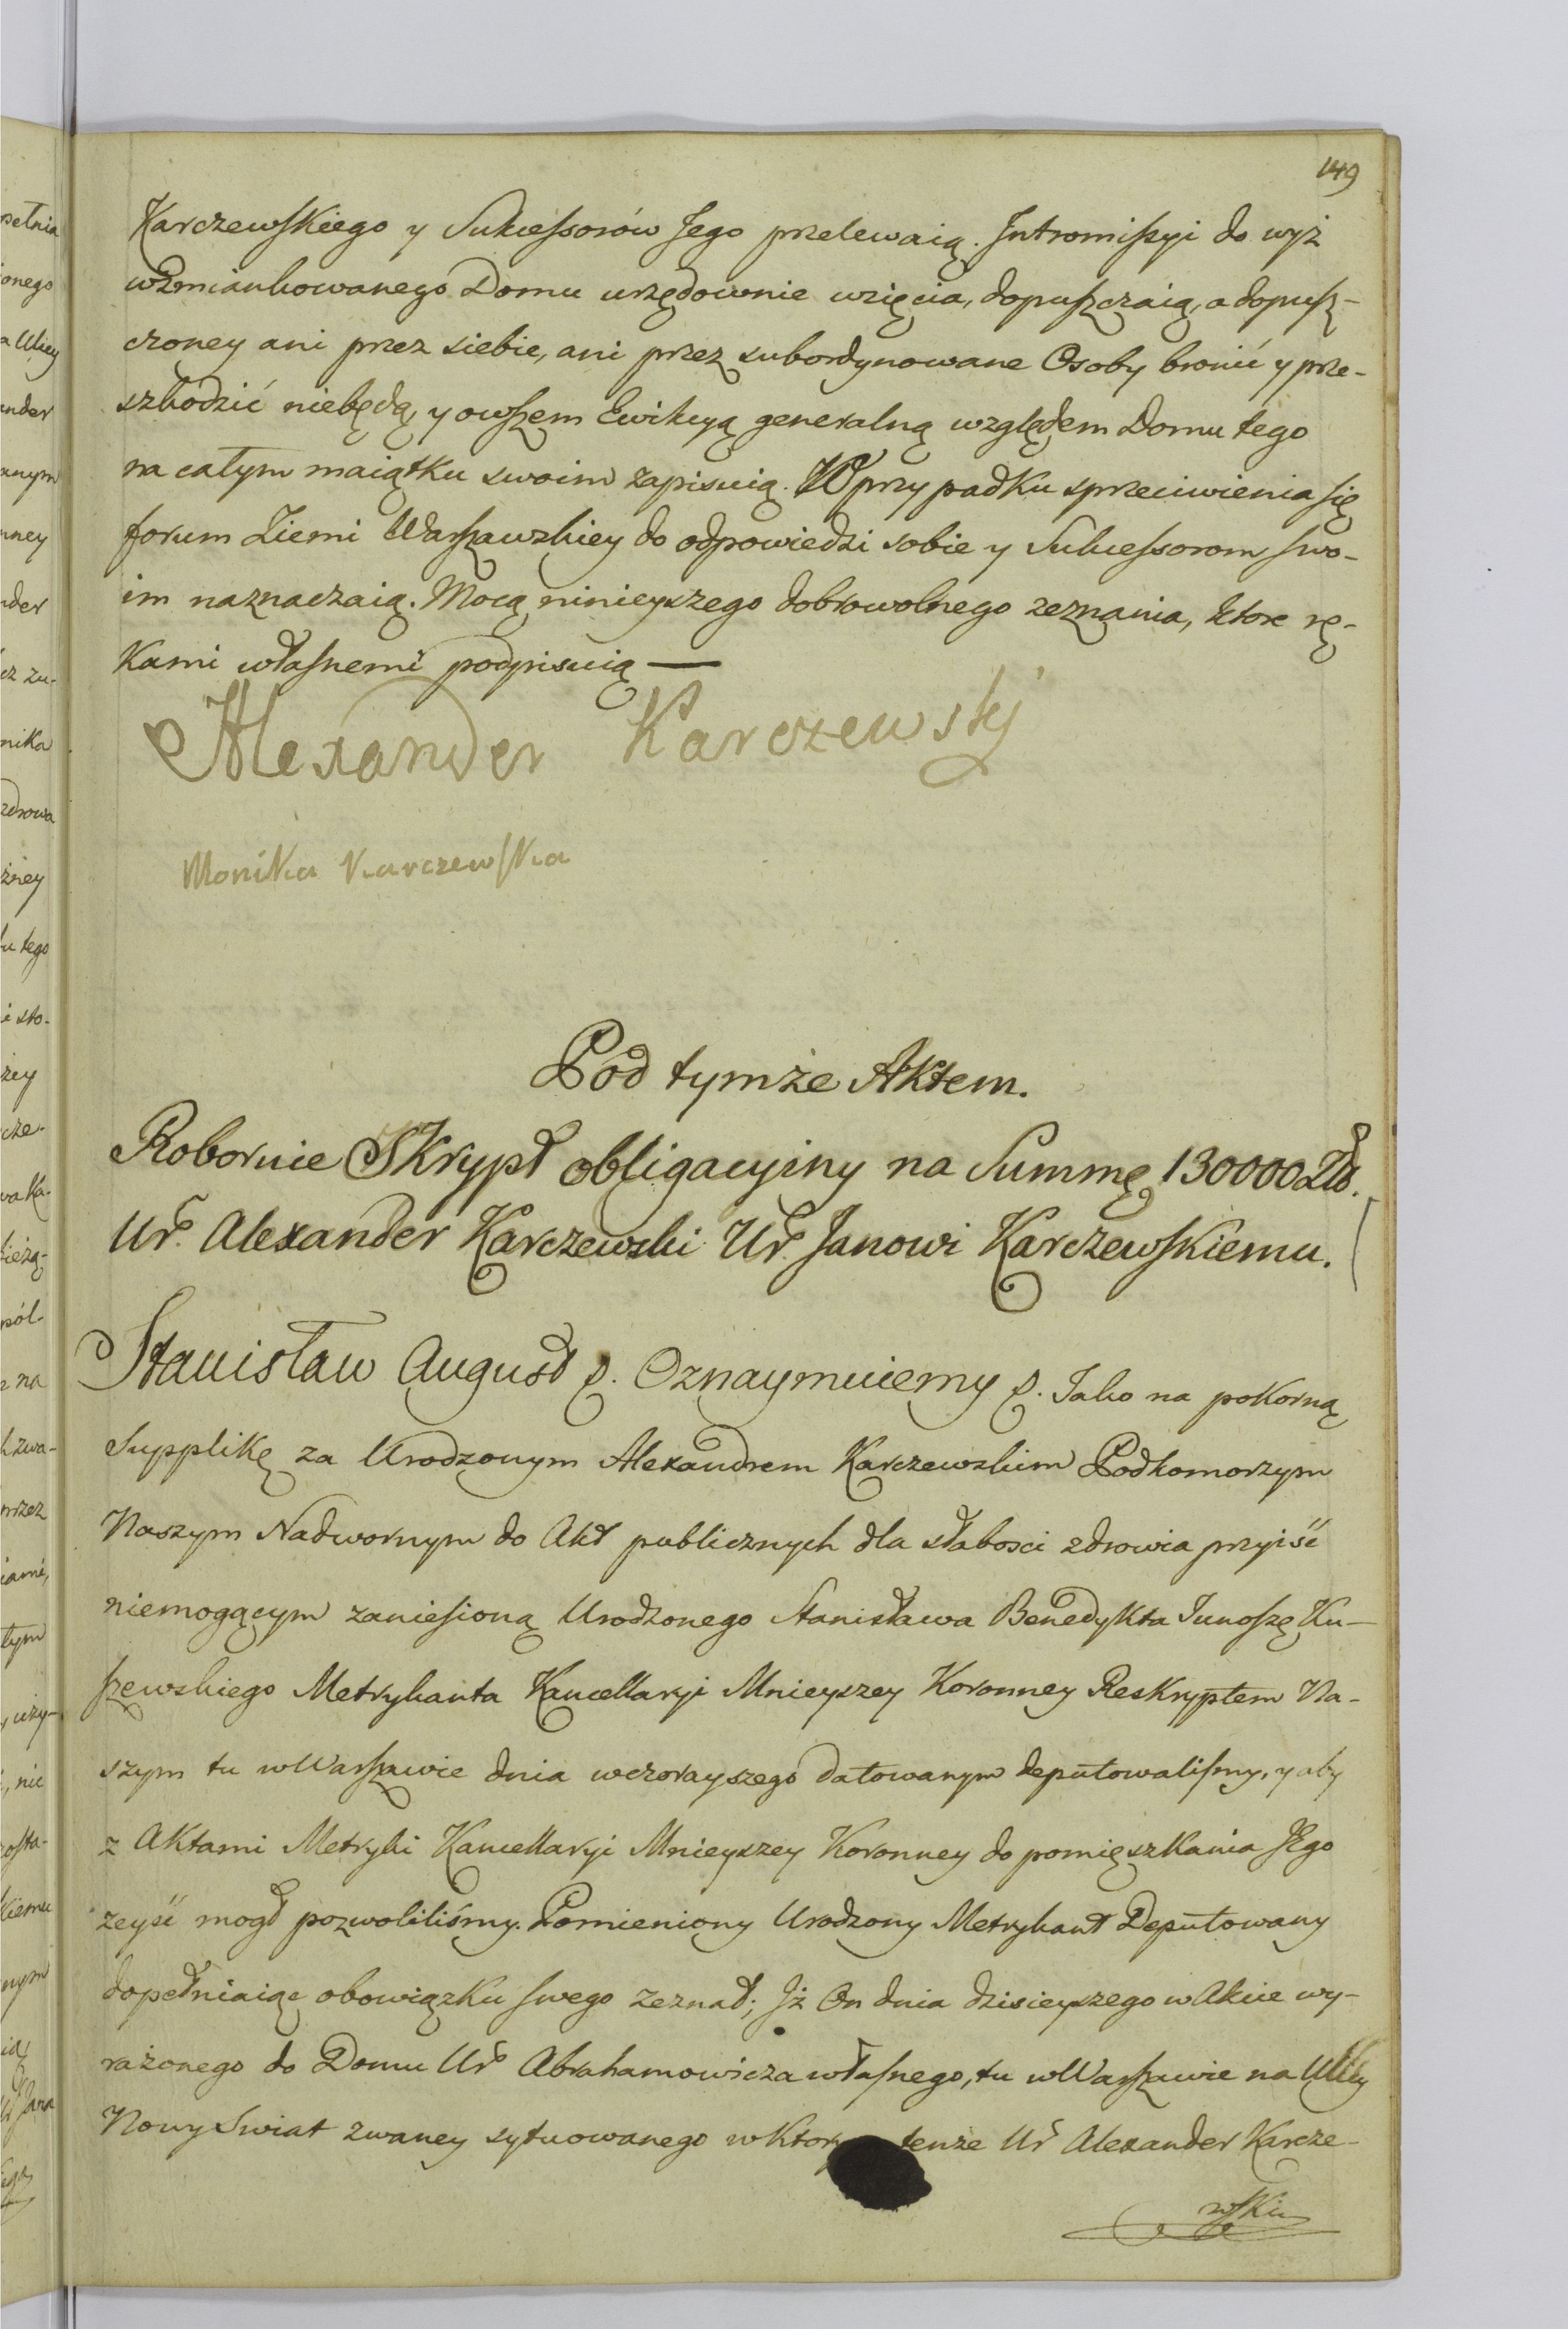 149
Karczewskiego y Sukcessorów Jego przelewaią. Intromissyi do wyż
wzmiankowanego Domu urzędownie wzięcia, dopuszczaią, a dopusz-
czoney ani przez siebie, ani przez subordynowane Osoby bronić y prze-
szkodzić niebędą, y owszem Ewikcyą generalną względem Domu tego
na całym maiątku swoim zapisuią. W przypadku sprzeciwienia się
forum Ziemi Warszawskiey do odpowiedzi sobie y Sukcessorom swo-
im naznaczaią. Mocą ninieyszego dobrowolnego zeznania, ktore rę-
kami własnemi podpisuią —
Alexander Karczewskj
Monika Karczewska
Pod tymże Aktem.
Roboruie Skrypt obligacyiny na Summę 130000 Zło.
Ur. Alexander Karczewski Ur. Janowi Karczewskiemu.
Stanisław August p. Oznaymuiemy p. Jako na pokorną
Supplikę za Urodzonym Alexandrem Karczewskim Podkomorzym
Naszym Nadwornym do Akt publicznych dla słabosci zdrowia przyiść
niemogącym zaniesioną Urodzonego Stanisława Benedykta Junoszę Ku-
szewskiego Metrykanta Kancellaryi Mnieyszey Koronney Reskryptem Na-
szym tu w Warszawie dnia wczorayszego datowanym deputowalismy, y aby
z Aktami Metryki Kancellaryi Mnieyszey Koronney do pomięszkania Jego
zeyść mogł pozwoliliśmy. Pomieniony Urodzony Metrykant Deputowany
dopełniaiąc obowiązku swego zeznał; Iż On dnia dzisieyszego w Akcie wy-
rażonego do Domu Ur. Abrahamowicza własnego, tu w Warszawie na Ulicy
Nowy Swiat zwaney sytuowanego w ktory tenże Ur Alexander Karcze-
wski